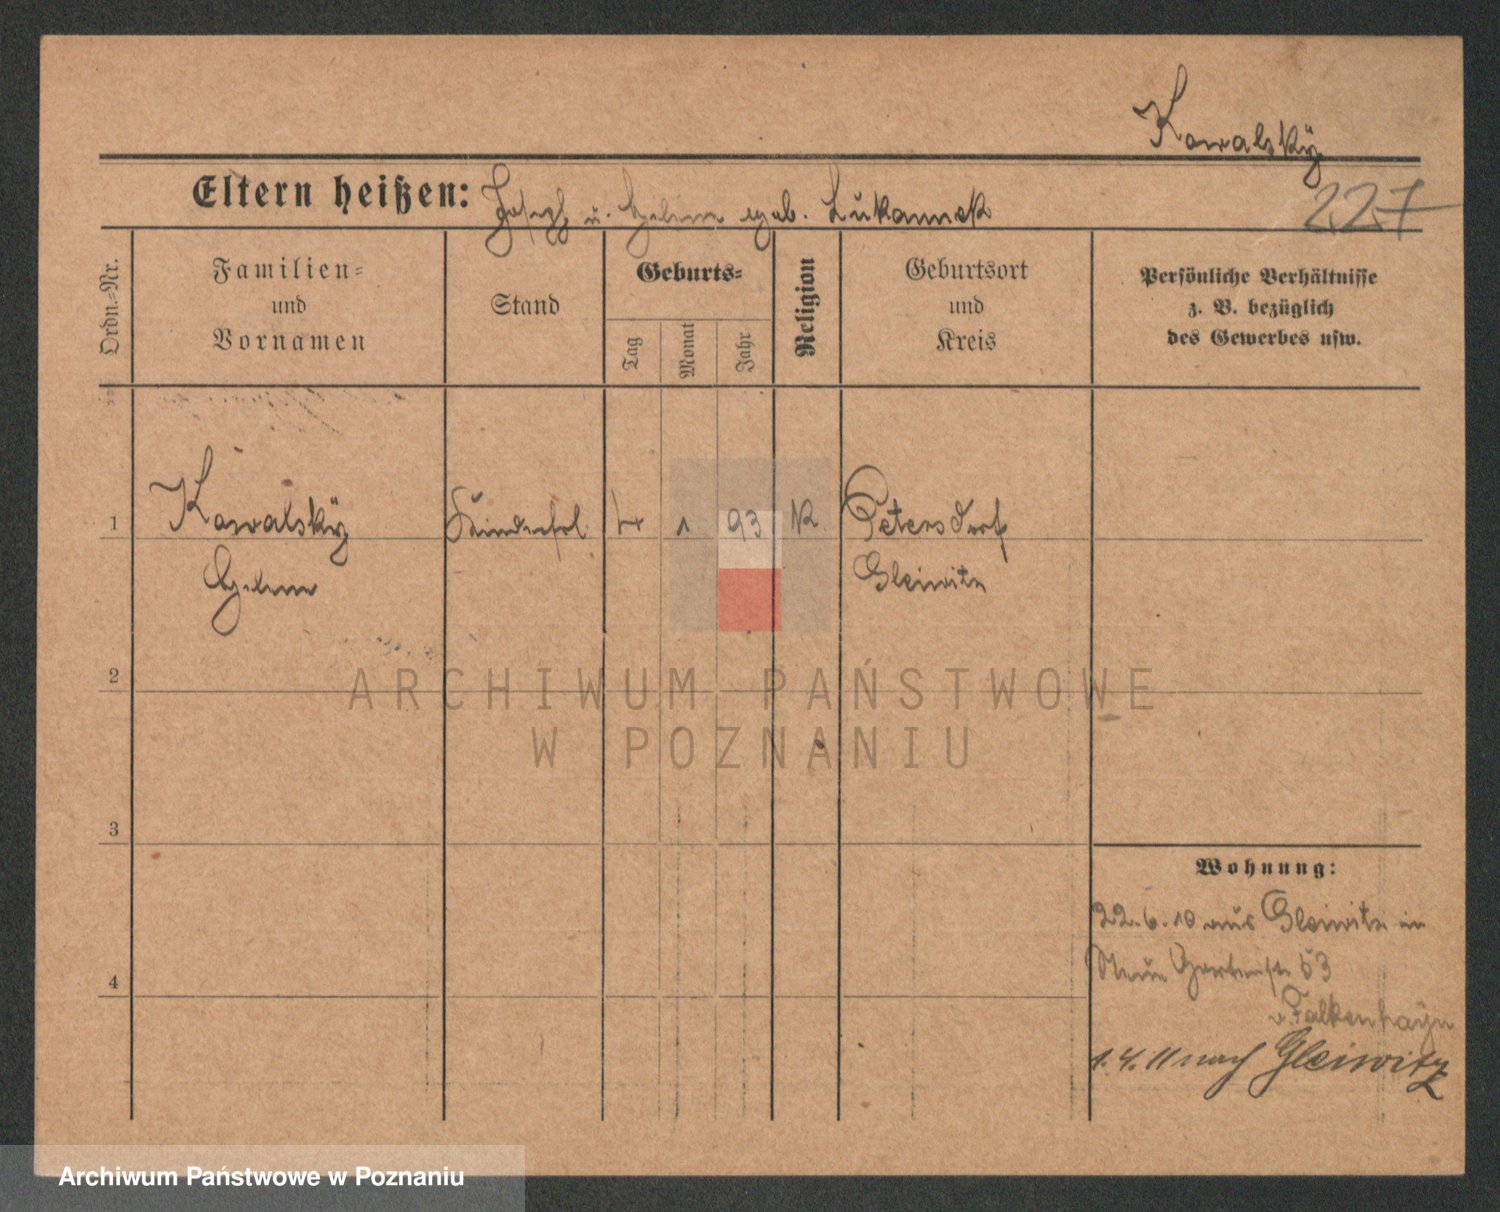 Kowalsky
Eltern heißen: Joseph u. Helene geb. Lukannek
227
Ordn.-Nr.
Familien-
und
Vornamen
Stand
Geburts-
Tag
Monat
Jahr
Religion
Geburtsort
und
Kreis
Persönliche Verhältnisse
z. B. bezüglich
des Gewerbes usw.
1 Kowalsky Kinderfrl. 4 1 93 K. Petersdorf
Helene Gleiwitz
2
ARCHIWUM PAŃSTWOWE
W POZNANIU
3
Wohnung:
22.6.10 aus Gleiwitz in
Neue Gartenstr. 53
v. Falkenhayn
4
1.4.11 nach Gleiwitz
Archiwum Państwowe w Poznaniu